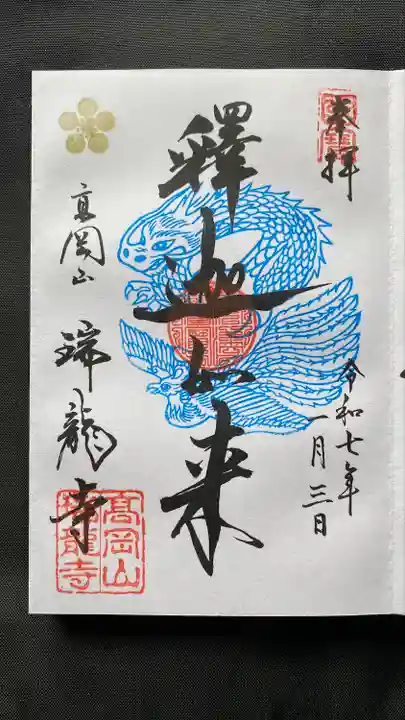 奉拝
令和七年
一月三日
釋迦如来
高岡山
瑞龍寺
高岡山
瑞龍寺